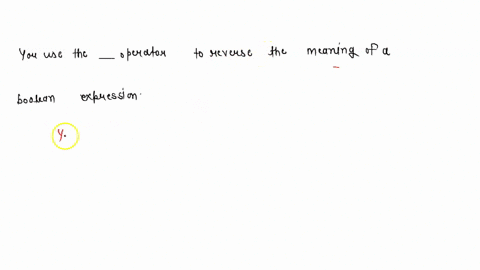 You use the __ operator to reverse the meaning of a
boolean expression.
Y.